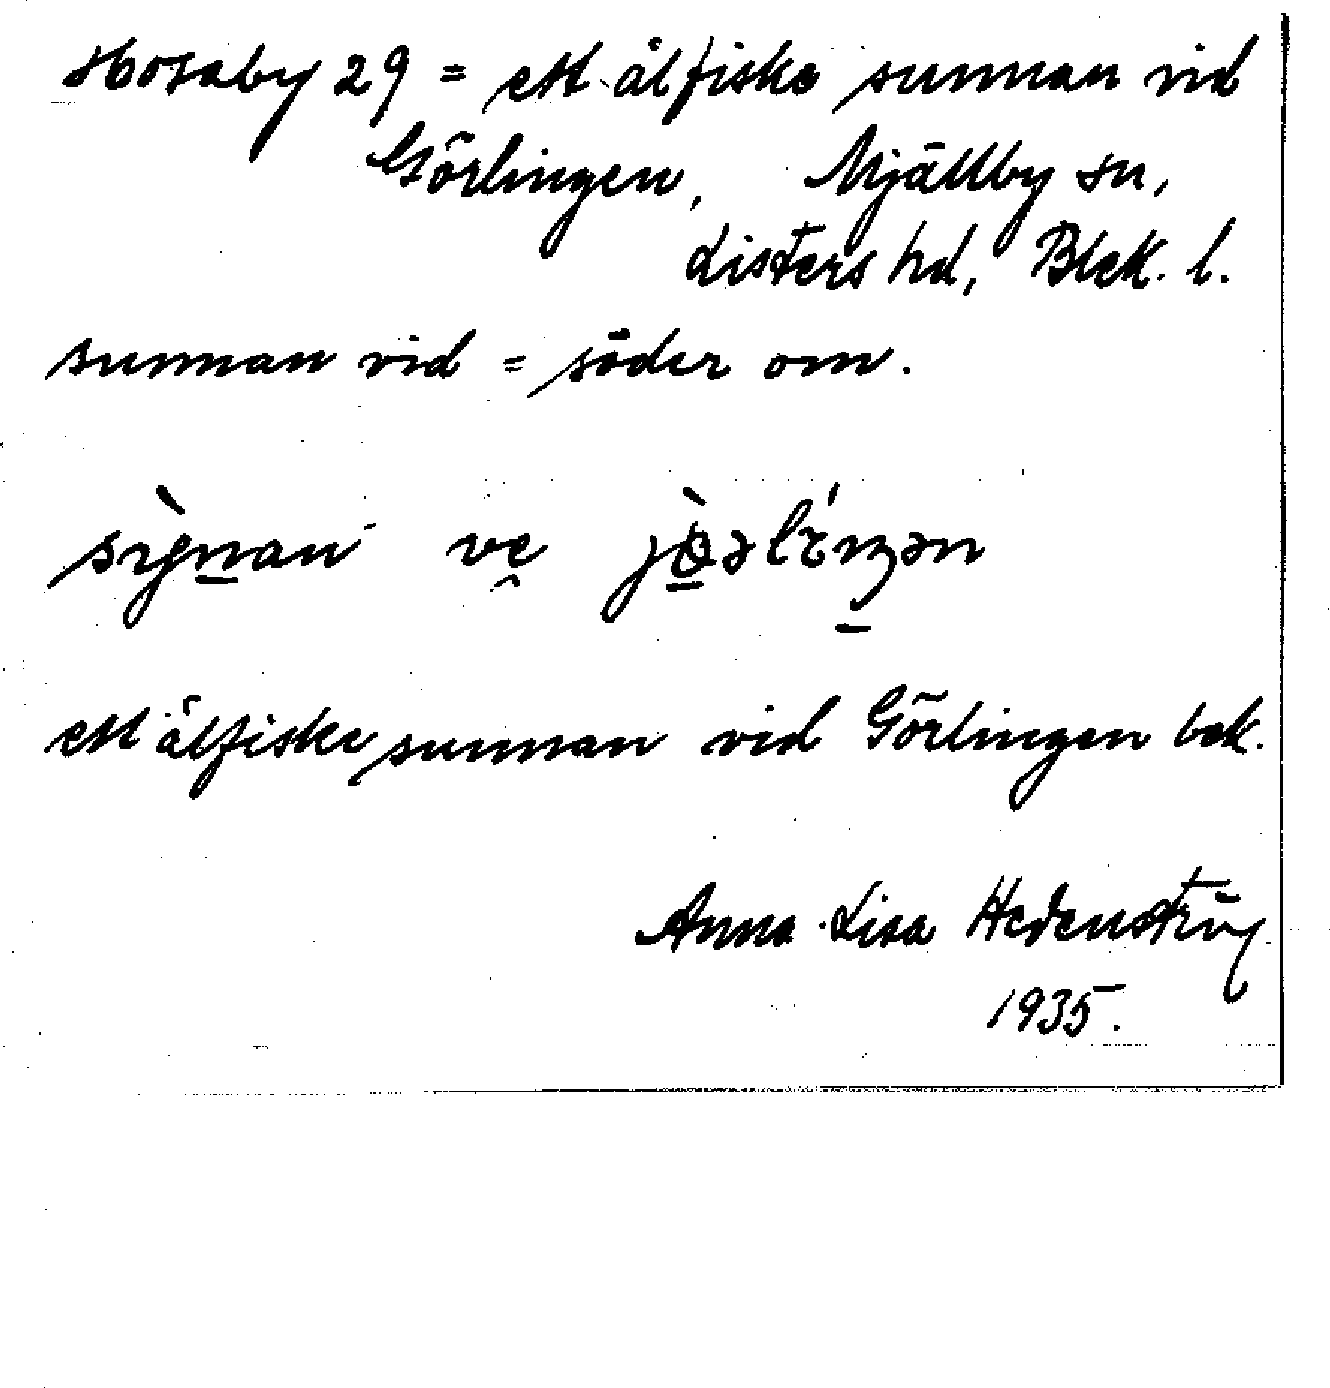 Hosaby 29 = ett ålfiske sunnan vid
Görlingen, Mjällby sn,
Listers hd, Blek. l.
sunnan vid = söder om.
ett ålfiske sunnan vid Görlingen bek.
Anna-Lisa Hedenstrüg
1935.